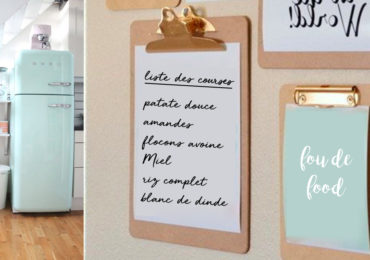 liste des courses
patate douce
amandes
flocons avoine
Miel
riz complet
blanc de dinde
World!
fou de
food